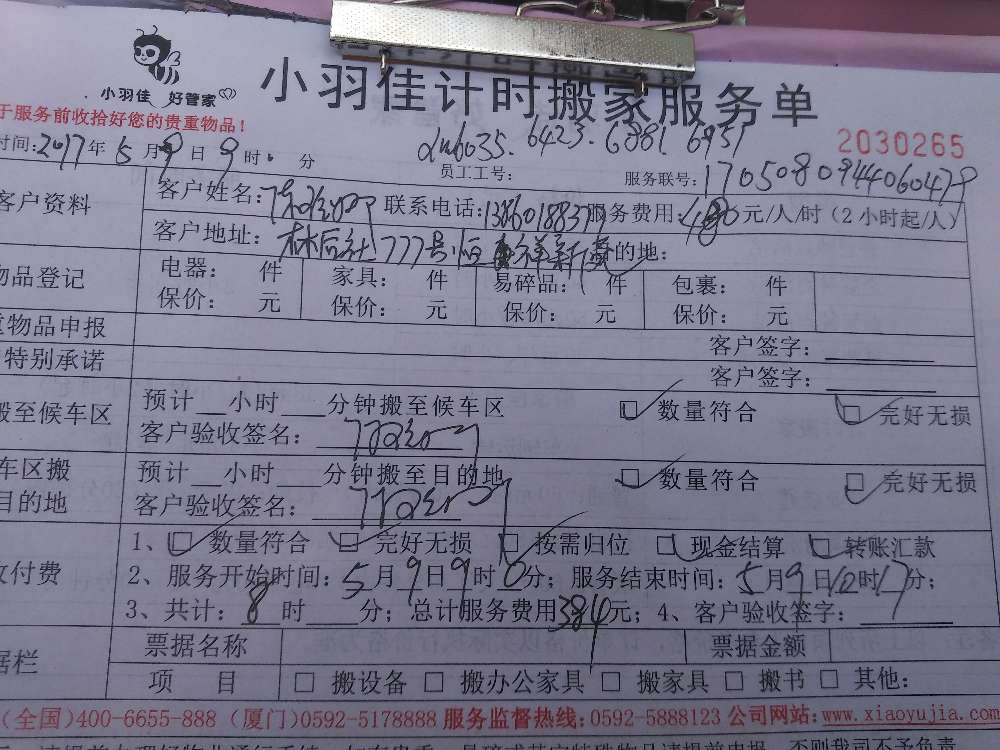 小羽佳 好管家
小羽佳计时搬家服务单
于服务前收拾好您的贵重物品!
2030265
时间:2017年5月9日9时 分
员工工号: 6035. 6423. 6881. 6951
服务联号:
客户资料
客户姓名: 联系电话: 服务费用: 元/人/时(2小时起/人)
客户地址: 林后社777号 的地:
物品登记
电器: 件 家具: 件 易碎品: 件 包裹: 件
保价: 元 保价: 元 保价: 元 保价: 元
重物品申报
客户签字:
特别承诺
客户签字:
搬至候车区
预计__小时___分钟搬至候车区 □ 数量符合 □ 完好无损
客户验收签名:
车区搬
目的地
预计__小时___分钟搬至目的地 □ 数量符合 □ 完好无损
客户验收签名:
收付费
1、□ 数量符合 □ 完好无损 □ 按需归位 □ 现金结算 □ 转账汇款
2、服务开始时间:5月9日9时0分;服务结束时间:5月9日12时17分;
3、共计:8时 分;总计服务费用384元;4、客户验收签字:
据栏
票据名称 票据金额
项 目 □ 搬设备 □ 搬办公家具 □ 搬家具 □ 搬书 □ 其他:
(全国)400-6655-888 (厦门)0592-5178888 服务监督热线:0592-5888123 公司网站:www.xiaoyujia.com